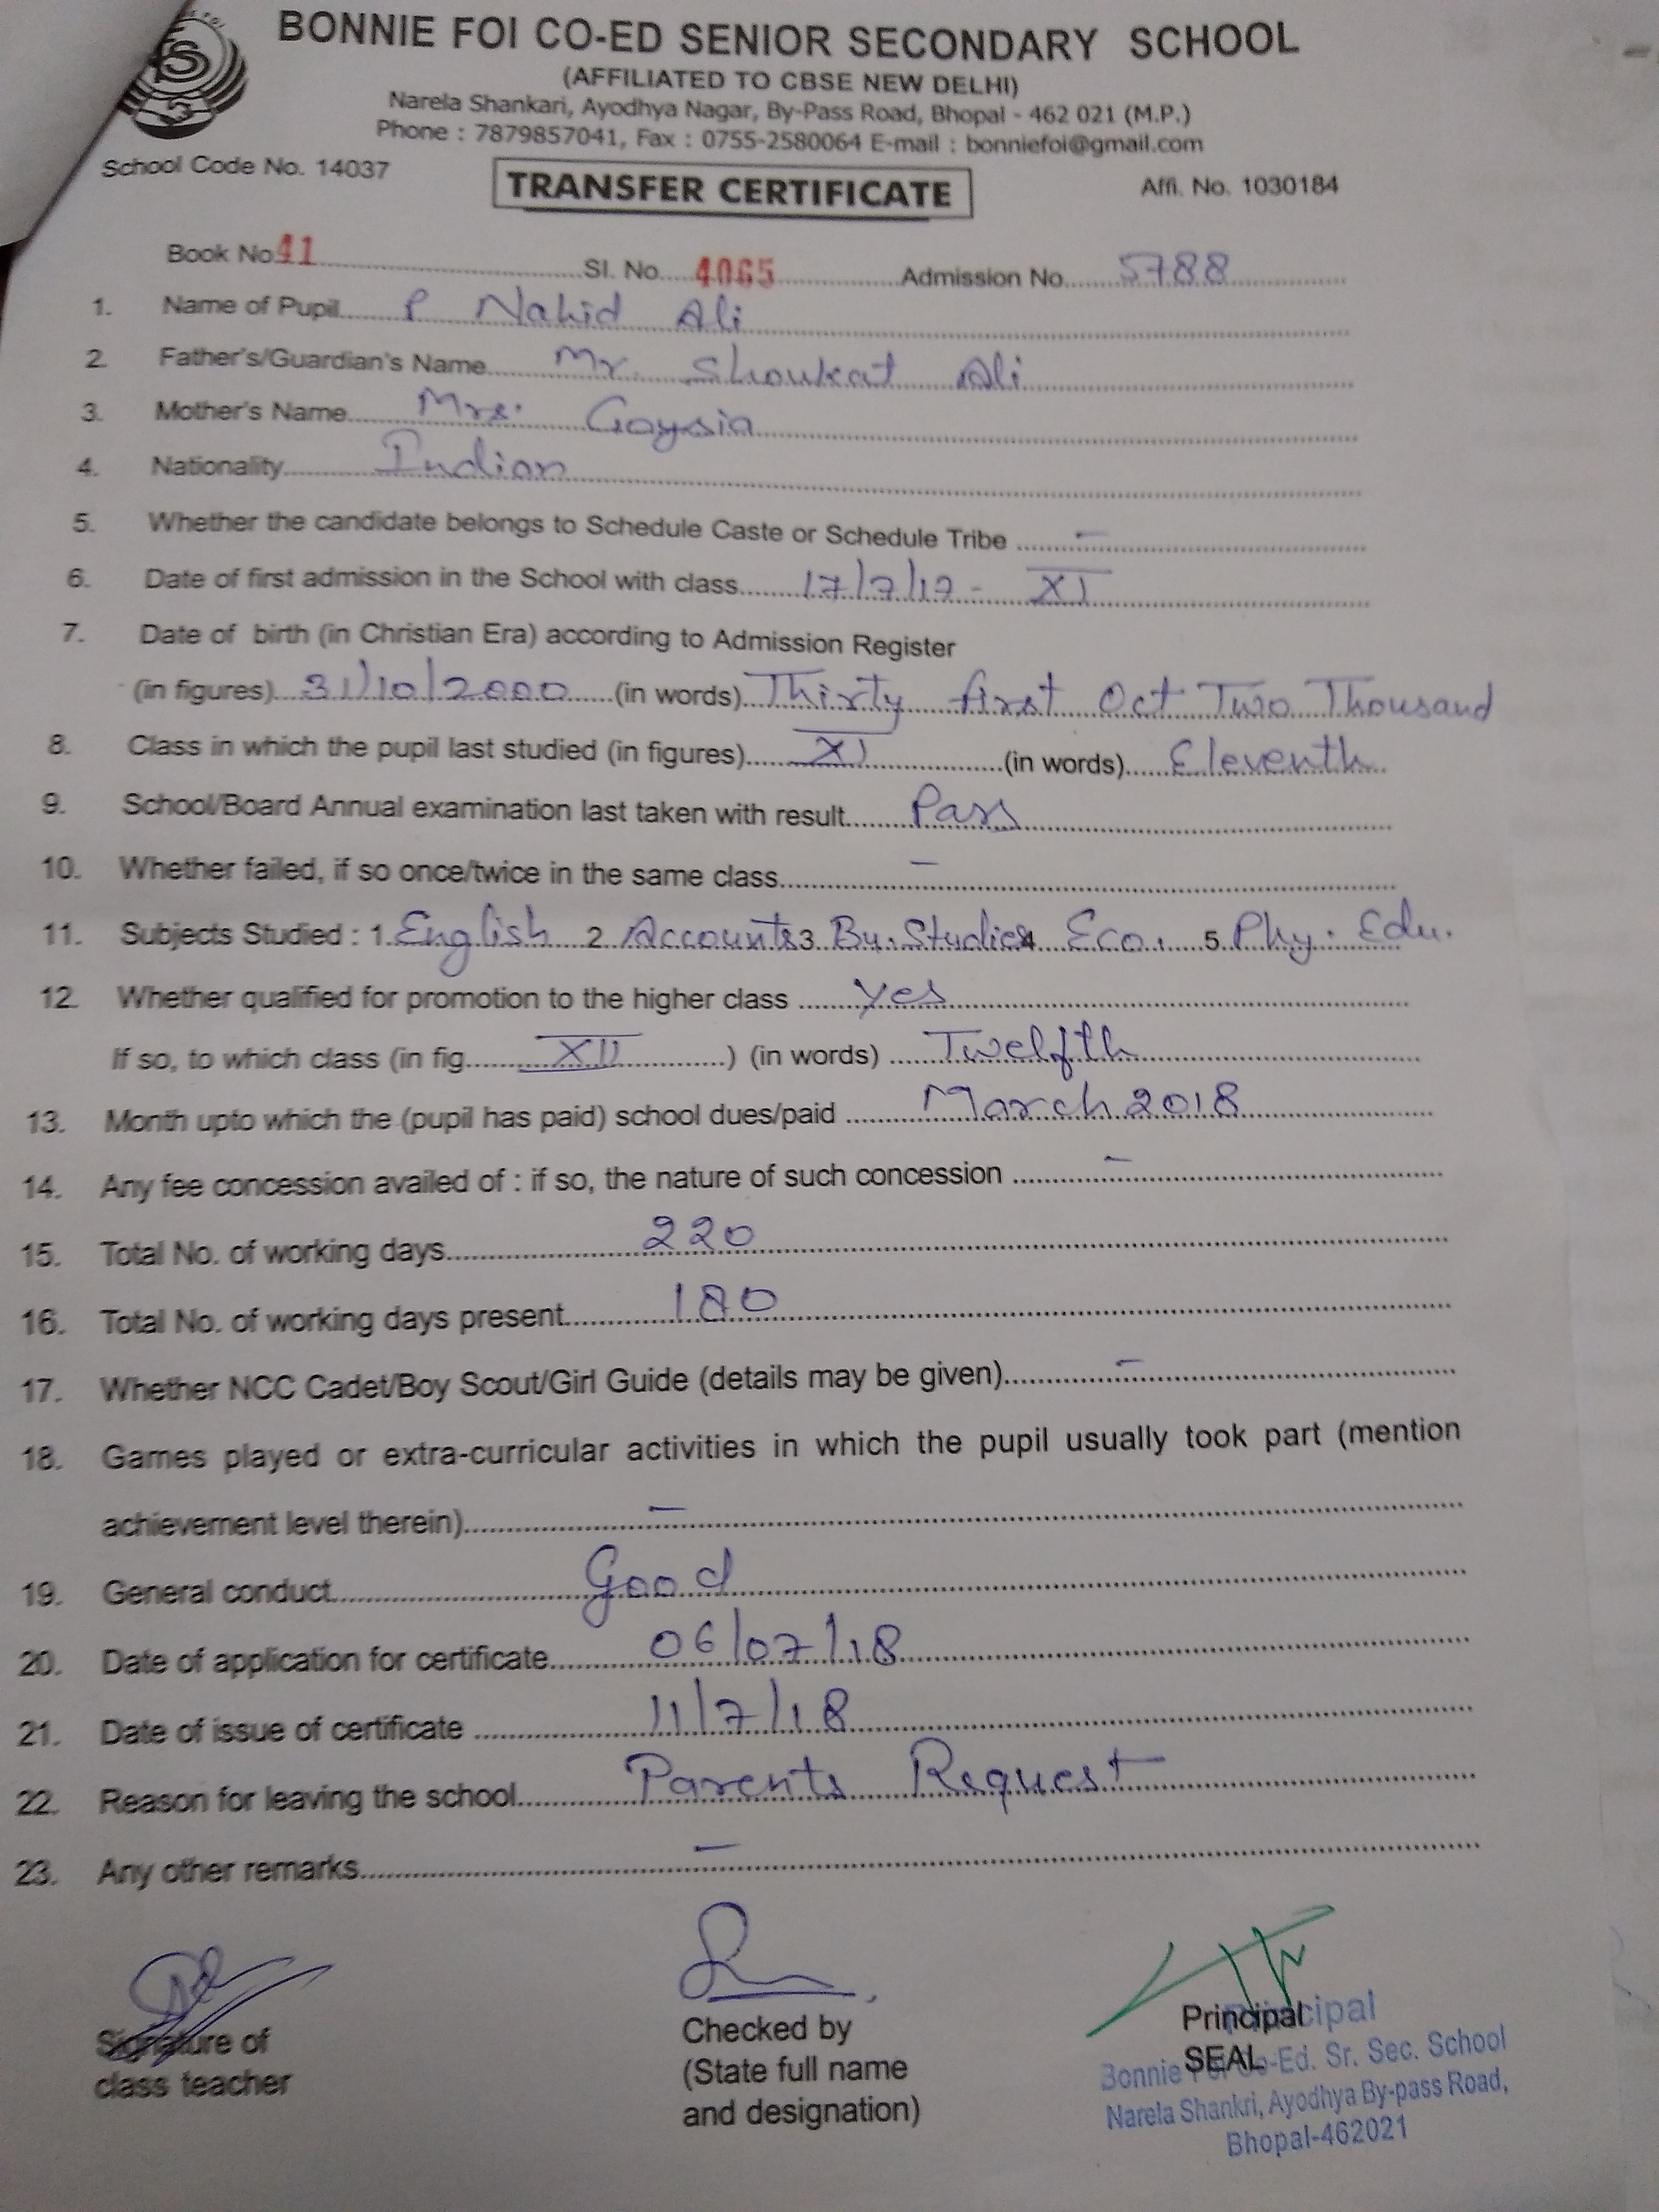 BONNIE FOI CO-ED SENIOR SECONDARY SCHOOL
(AFFILIATED TO CBSE NEW DELHI)
Narela Shankari, Ayodhya Nagar, By-Pass Road, Bhopal - 462 021 (M.P.)
Phone : 7879857041, Fax : 0755-2580064 E-mail : bonniefoi@gmail.com
School Code No. 14037 TRANSFER CERTIFICATE Affi. No. 1030184
Book No 41 Sl. No. 4065 Admission No. 5788
1. Name of Pupil P Nahid Ali
2. Father's/Guardian's Name Mr. Shoukat Ali
3. Mother's Name Mrs. Goysia
4. Nationality Indian
5. Whether the candidate belongs to Schedule Caste or Schedule Tribe –
6. Date of first admission in the School with class 17/7/17 - XI
7. Date of birth (in Christian Era) according to Admission Register
(in figures) 31/10/2000 (in words) Thirty first Oct Two Thousand
8. Class in which the pupil last studied (in figures) XI (in words) Eleventh
9. School/Board Annual examination last taken with result Pass
10. Whether failed, if so once/twice in the same class –
11. Subjects Studied : 1. English 2 Accounts 3 Bu. Studies 4 Eco. 5. Phy. Edu.
12. Whether qualified for promotion to the higher class yes
If so, to which class (in fig. XII ) (in words) Twelfth
13. Month upto which the (pupil has paid) school dues/paid March 2018
14. Any fee concession availed of : if so, the nature of such concession –
15. Total No. of working days 220
16. Total No. of working days present 180
17. Whether NCC Cadet/Boy Scout/Girl Guide (details may be given) –
18. Games played or extra-curricular activities in which the pupil usually took part (mention
achievement level therein) –
19. General conduct Good
20. Date of application for certificate 06/07/18
21. Date of issue of certificate 11/7/18
22. Reason for leaving the school Parents Request
23. Any other remarks –
Signature of
class teacher
Checked by
(State full name
and designation)
Principal
SEAL
Principal
Bonnie Foi Co-Ed. Sr. Sec. School
Narela Shankri, Ayodhya By-pass Road,
Bhopal-462021